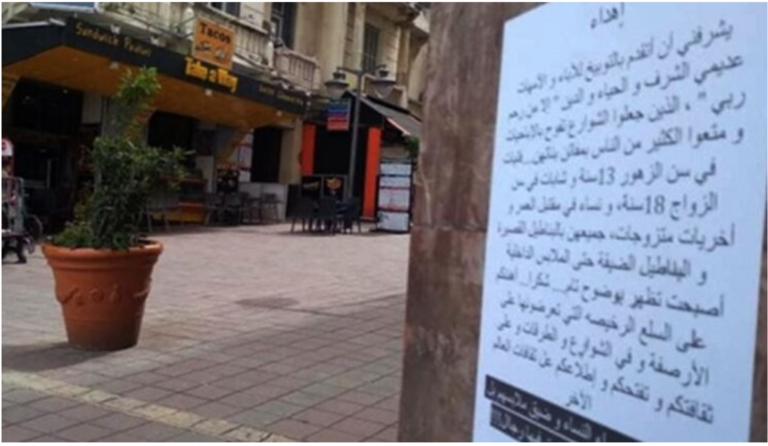 Sandwich Panini
Tacos
Take a Way
إهداء
يشرفني أن أتقدم بالتوبيخ للآباء و الأمهات
عديمي الشرف و الحياء و الدين " إلا من رحم
ربي " ، الذين جعلوا الشوارع تفوح
و متعوا الكثير من الناس بمفاتن بناتهن...فتيات
في سن الزهور 13سنة و شابات في سن
الزواج 18سنة، و نساء في مقتبل العمر و
أخريات متزوجات، جميعهن القصيرة
و الضيقة حتى الملابس الداخلية
أصبحت تظهر بوضوح تام... شكرا...
على السلع الرخيصة التي تعرضونها على
الأرصفة و في الشوارع و الطرقات و على
ثقافتكم و تفتحكم و إطلاعكم عن ثقافات العالم
الأخر
النساء و ضيق ملابسهم